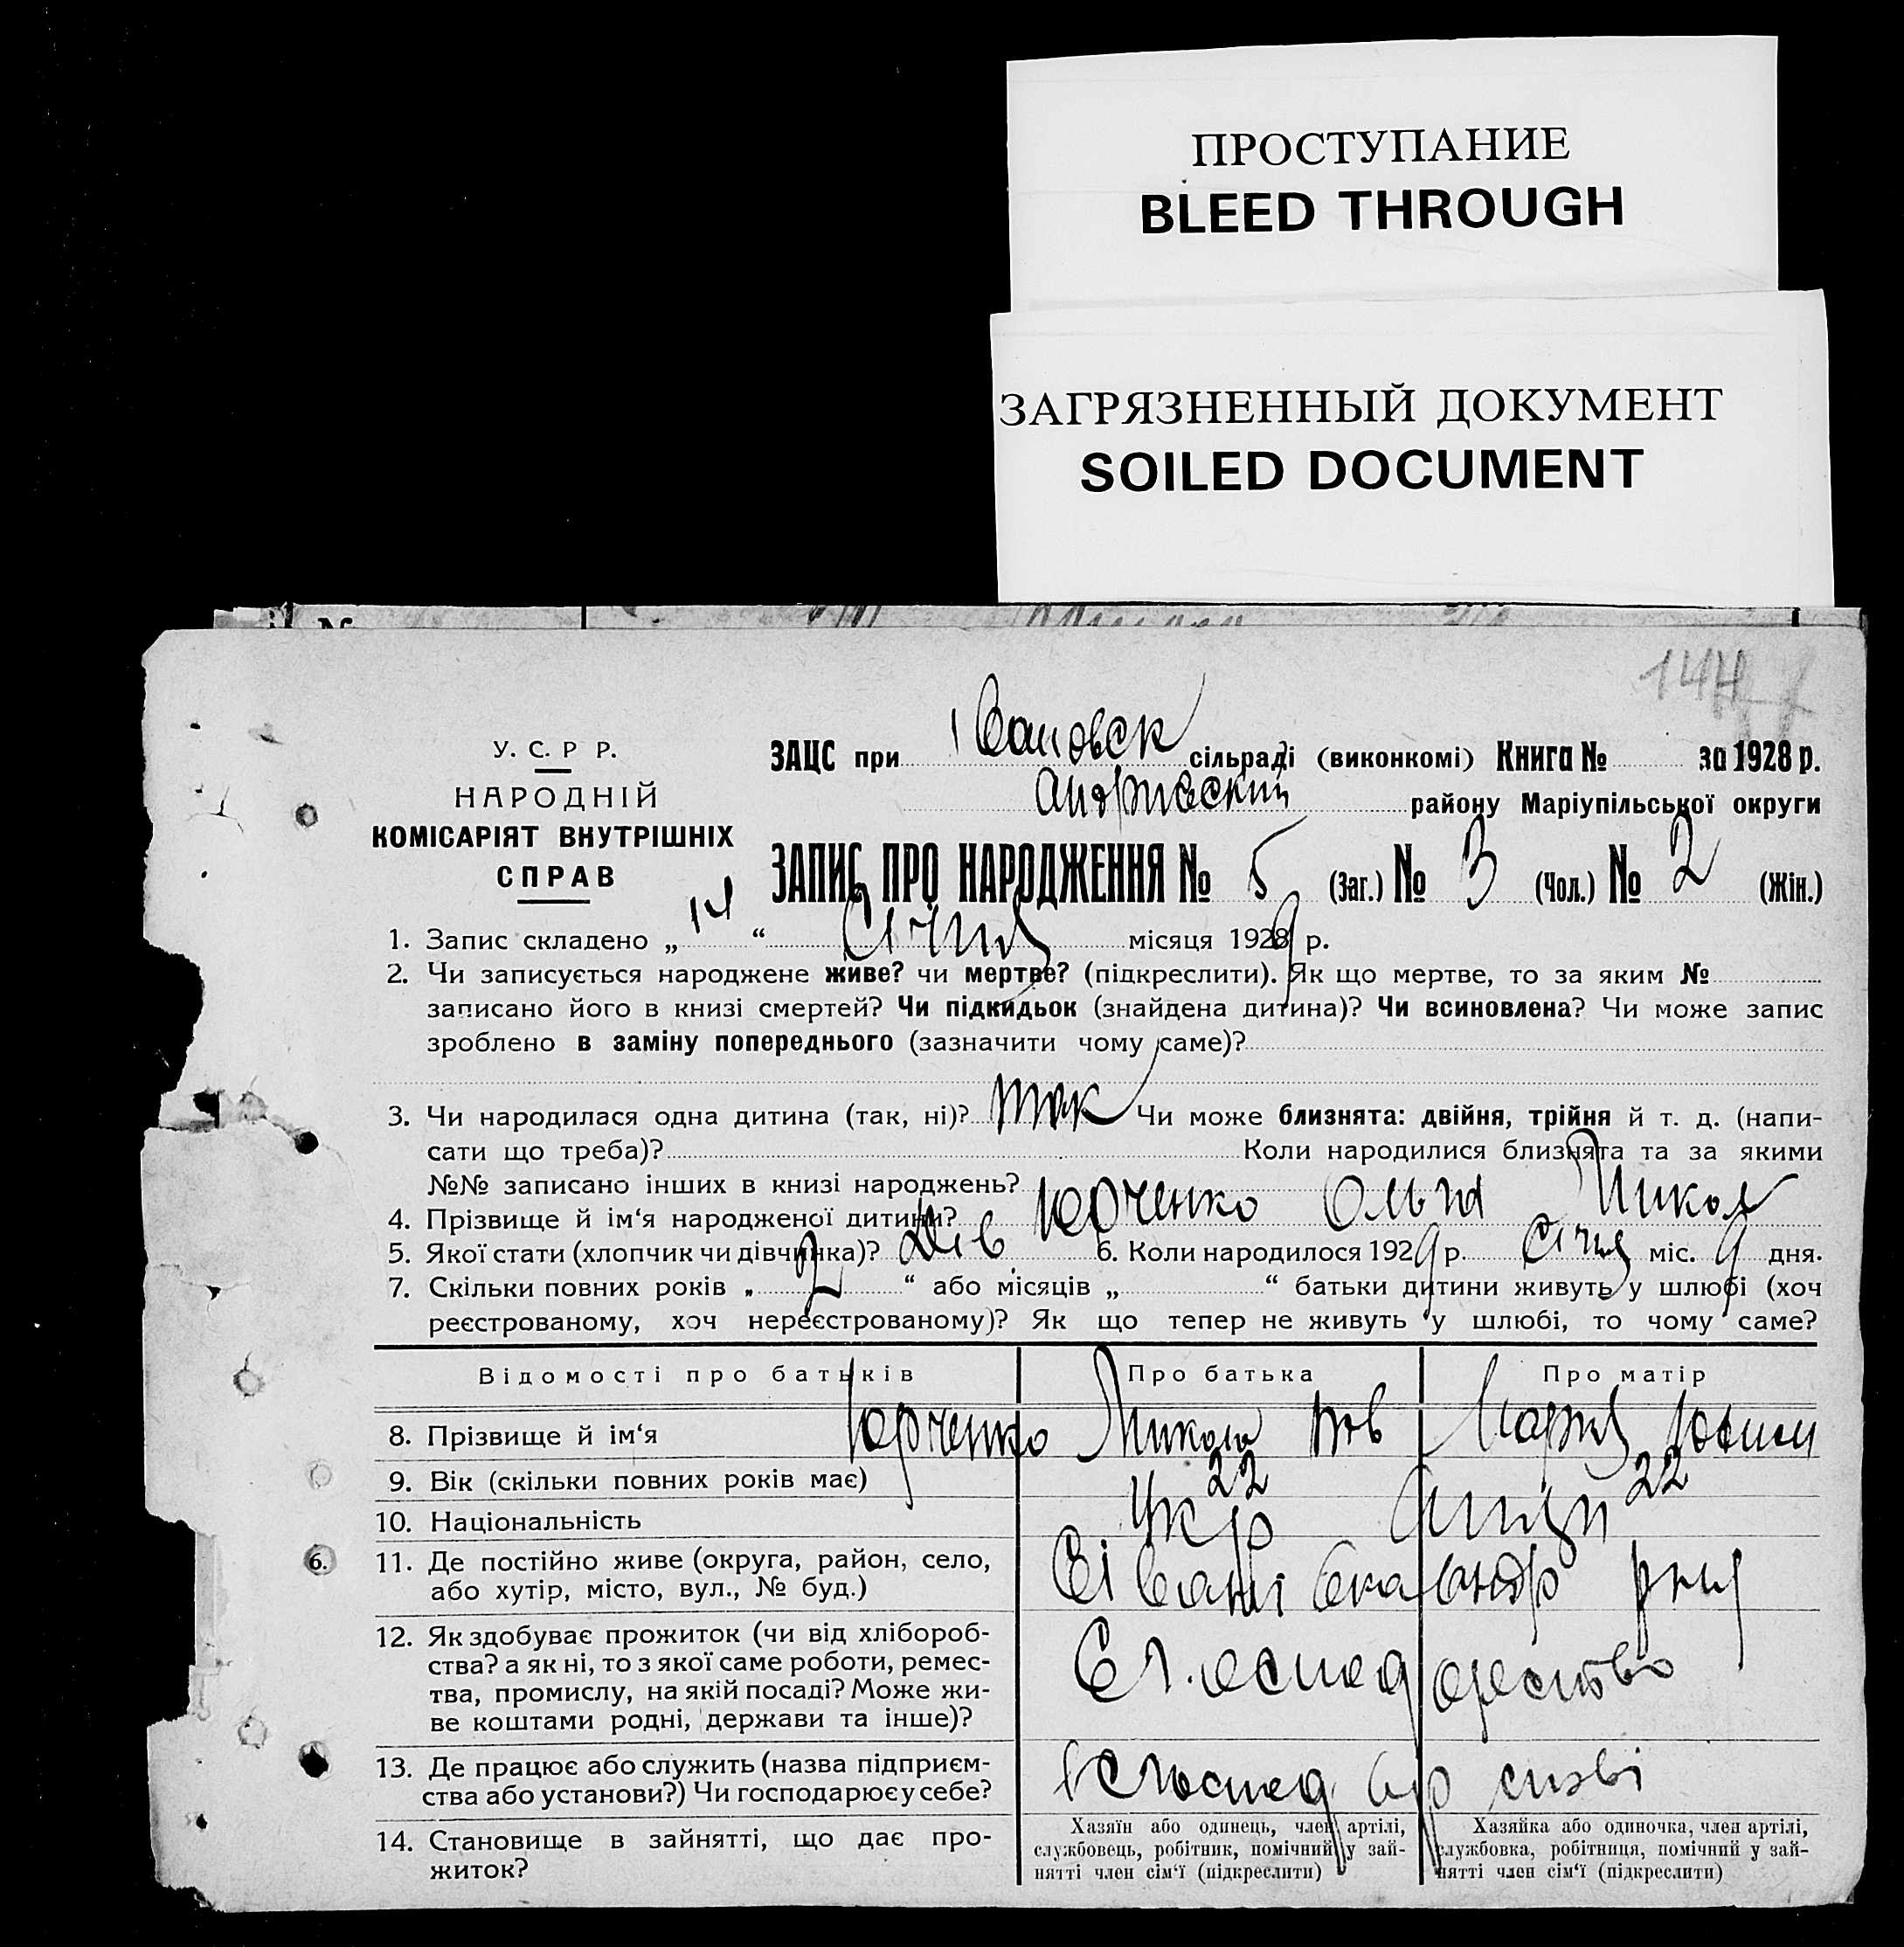 ПРОСТУПАНИЕ
BLEED THROUGH
ЗАГРЯЗНЕННЫЙ ДОКУМЕНТ
SOILED DOCUMENT
144
У. С. Р Р.
НАРОДНІЙ
КОМІСАРІЯТ ВНУТРІШНІХ
СПРАВ
ЗАЦС при Івановск сільраді (виконкомі) Книга № за 1928 р.
району Маріупільської округи
ЗАПИС ПРО НАРОДЖЕННЯ № 5 (Заг.) № 3 (Чол.) № 2 (Жін.)
1. Запис складено „ 14 “ Січня місяця 1929 р.
2. Чи записується народжене живе? чи мертве? (підкреслити). Як що мертве, то за яким №
записано його в книзі смертей? Чи підкидьок (знайдена дитина)? Чи всиновлена? Чи може запис
зроблено в заміну попереднього (зазначити чому саме)?
3. Чи народилася одна дитина (так, ні)? так Чи може близнята: двійня, трійня й т. д. (напи-
сати що треба)? Коли народилися близнята та за якими
№№ записано інших в книзі народжень?
4. Прізвище й ім‘я народженої дитини? Юрченко Ольга Микол
5. Якої стати (хлопчик чи дівчинка)? Дів 6. Коли народилося 1929 р. Січня міс. 9 дня.
7. Скільки повних років „ 2 “ або місяців „ “ батьки дитини живуть у шлюбі (хоч
реєстрованому, хоч нереєстрованому)? Як що тепер не живуть у шлюбі, то чому саме?
Відомості про батьків Про батька Про матір
8. Прізвище й ім‘я Юрченко Микола Мария
9. Вік (скільки повних років має) 22 22
10. Національність Укр
11. Де постійно живе (округа, район, село,
або хутір, місто, вул., № буд.)
12. Як здобуває прожиток (чи від хлібороб-
ства? а як ні, то з якої саме роботи, ремес-
тва, промислу, на якій посаді? Може жи-
ве коштами родні, держави та інше)?
13. Де працює або служить (назва підприєм-
ства або установи?) Чи господарює у себе?
14. Становище в зайнятті, що дає про-
житок?
Хазяїн або одинець, член артілі,
службовець, робітник, помічний у зай-
нятті член сім‘ї (підкреслити)
Хазяйка або одиночка, член артілі,
службовка, робітниця, помічний у зай-
нятті член сім‘ї (підкреслити)
6.